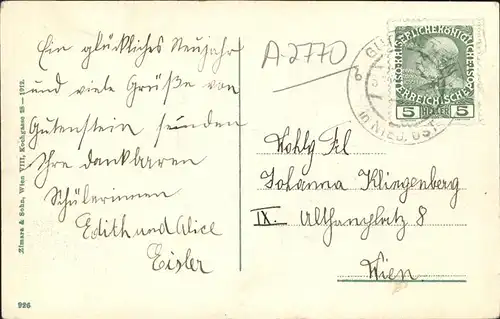 Ein glückliches Neujahr
und viele Grüße von
Gutenstein senden
Ihre dankbaren
Schülerinnen
Edith und Alice
Eisler
A-2770
6
IN NIED. ÖST.
5 HELLER 5
Wohlg Frl
Johanna Kliengenberg
IX. Althanplatz 8
Wien.
Zimara & Sohn, Wien VIII, Kochgasse 28 — 1912.
926